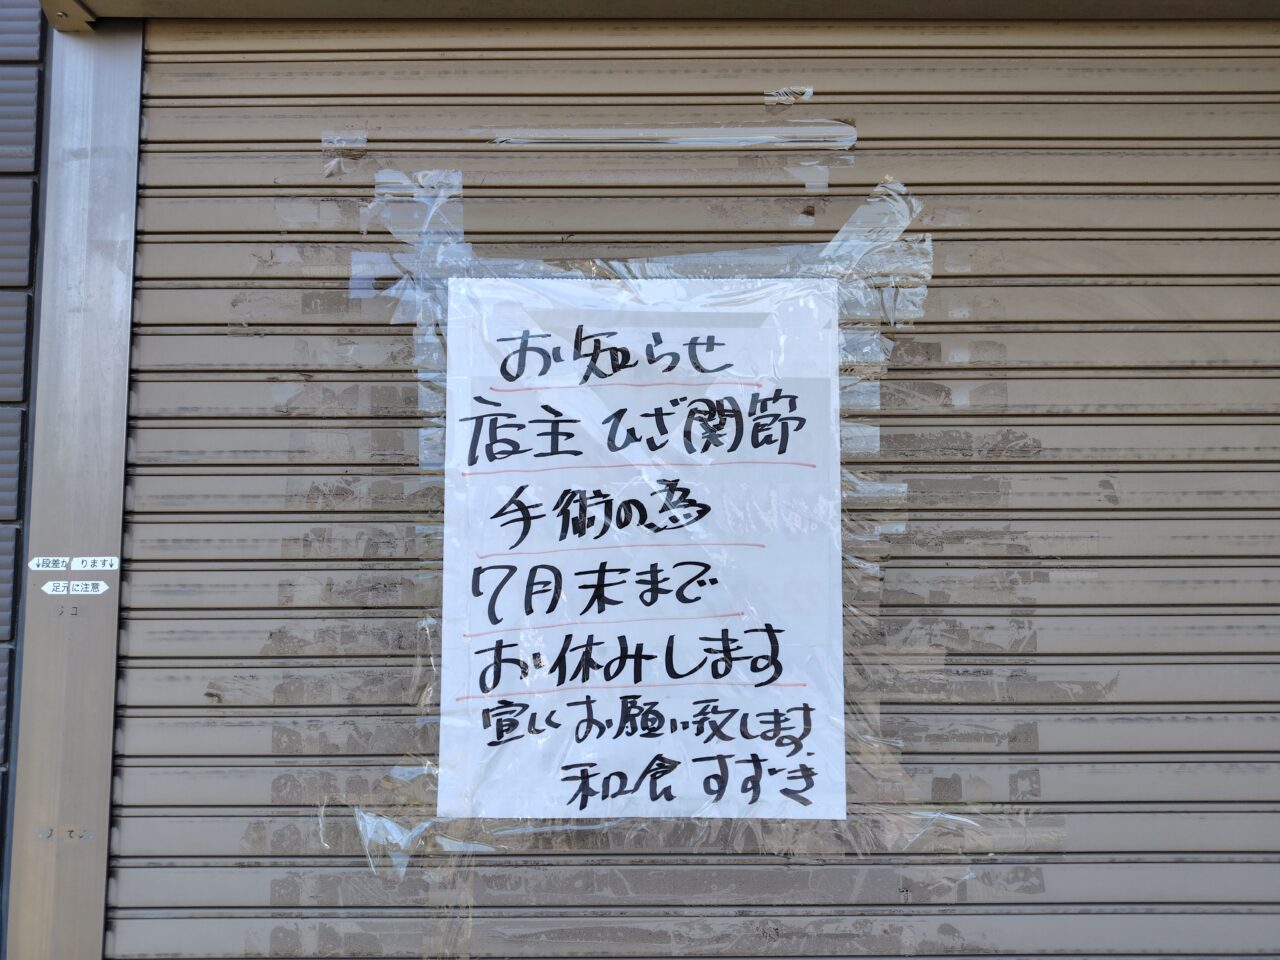 お知らせ
店主 ひざ関節
手術の為
7月末まで
お休みします
宜しくお願い致します。
和食 すずき
↓段差が ります↓
足元に注意